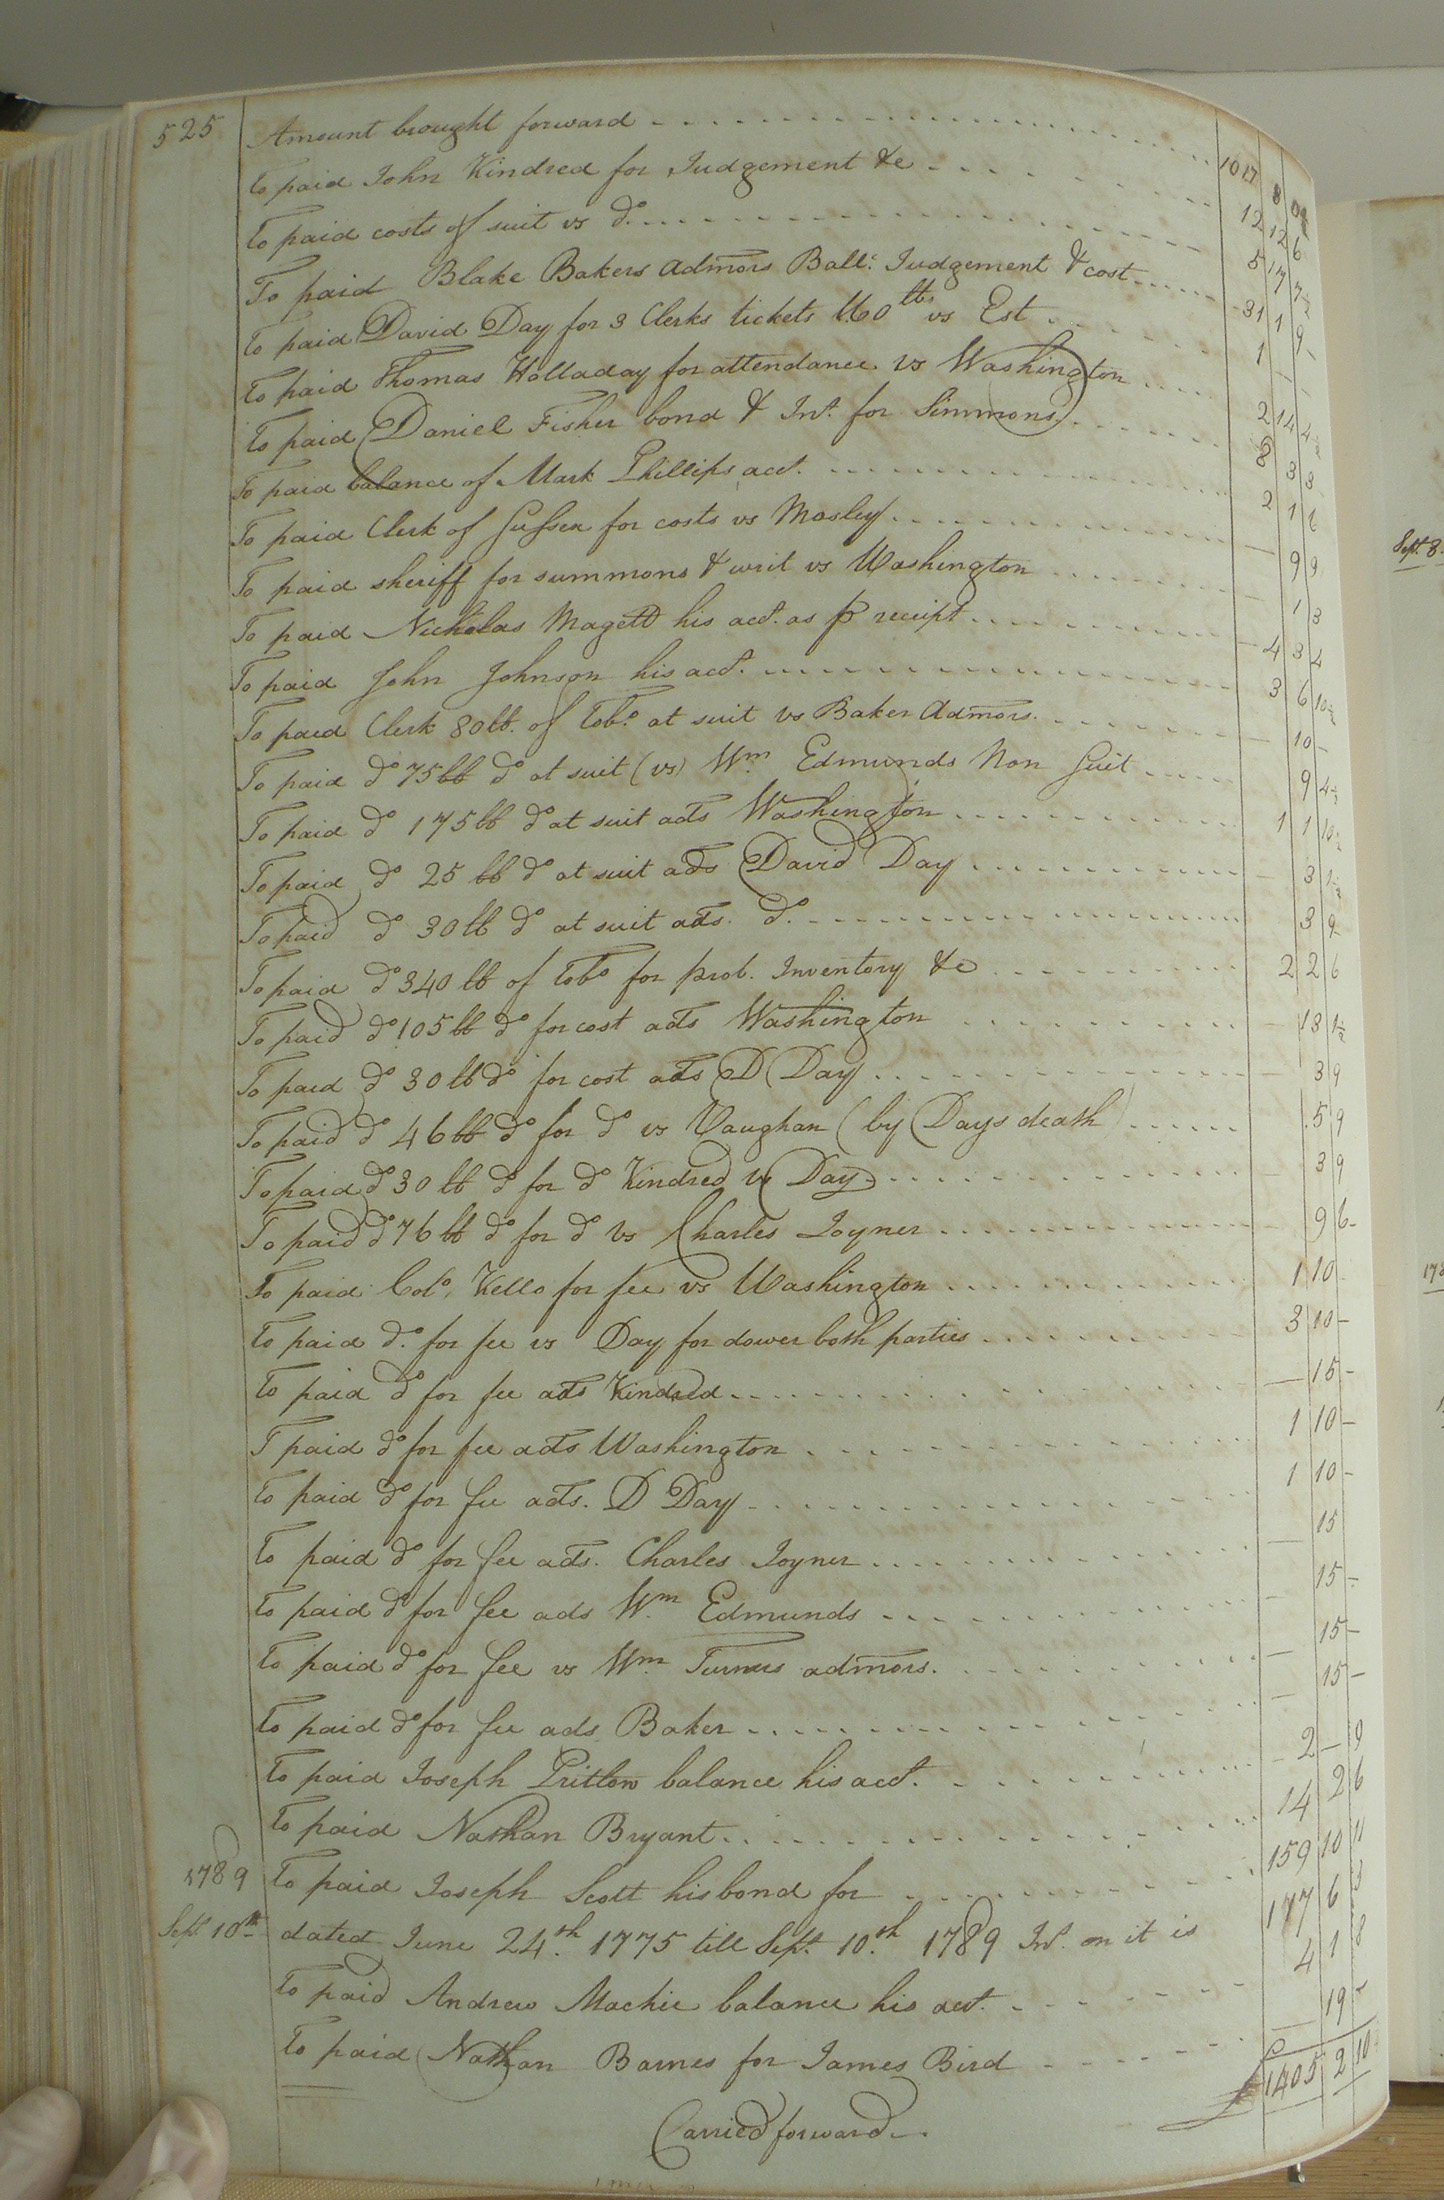 525 Amount brought forward 1017 8 0
To paid John Kindred for Judgement &c 12 12 6
To paid costs of suit vs do. 5 17 7½
To paid Blake Bakers Admors Balla. Judgement & cost 31 1 9
To paid David Day for 3 Clerks tickets 160 lb vs Est 1 - -
To paid Thomas Holladay for attendance vs Washington 2 14 4½
To paid Daniel Fisher bond & Int. for Simmons 8 3 3
To paid balance of Mark Phillips acct. 2 1 6
To paid Clerk of Sussex for costs vs Mosley - 9 9
To paid sheriff for summons & writ vs Washington - 1 3
To paid Nicholas Magett his acct. as pr receipt 4 3 4
To paid John Johnson his acct. 3 6 10½
To paid Clerk 80 lb. of Tobo. at suit vs Baker Admors. - 10 -
To paid do 75 lb do at suit (vs) Wm. Edmunds Non Suit 9 4½
To paid do 175 lb do at suit ads Washington 1 1 10½
To paid do 25 lb do at suit ads David Day - 3 1½
To paid do 30 lb do at suit ads. do. 3 9
To paid do 340 lb of Tobo for prob. Inventory &c 2 2 6
To paid do 105 lb do for cost ads Washington - 13 1½
To paid do 30 lb do for cost ads D Day - 3 9
To paid do 46 lb do for do vs Vaughan (by Days death) 5 9
To paid do 30 lb do for do Kindred vs Day - 3 9
To paid do 76 lb do for do vs Charles Joyner - 9 6
To paid Colo. Kello for fee vs Washington 1 10
To paid do. for fee vs Day for dower both parties 3 10 -
To paid do for fee ads Kindred - 15 -
T paid do for fee ads Washington 1 10 -
To paid do for fee ads. D Day 1 10 -
To paid do for fee ads. Charles Joyner - 15
To paid do for fee ads Wm. Edmunds - 15 -
To paid do for fee vs Wm. Turners admors. - 15 -
To paid do for fee ads Baker - 15 -
To paid Joseph Pritlow balance his acct. 2 - 9
To paid Nathan Bryant 14 2 6
1789 To paid Joseph Scott his bond for 159 10 11
Sept. 10th dated June 24.th 1775 till Sept. 10.th 1789 Int. on it is 177 6 3
To paid Andrew Mackie balance his acct. 4 1 8
To paid Nathan Barnes for James Bird - 19 -
£1405 2 10
Carried forward
Sept. 8.